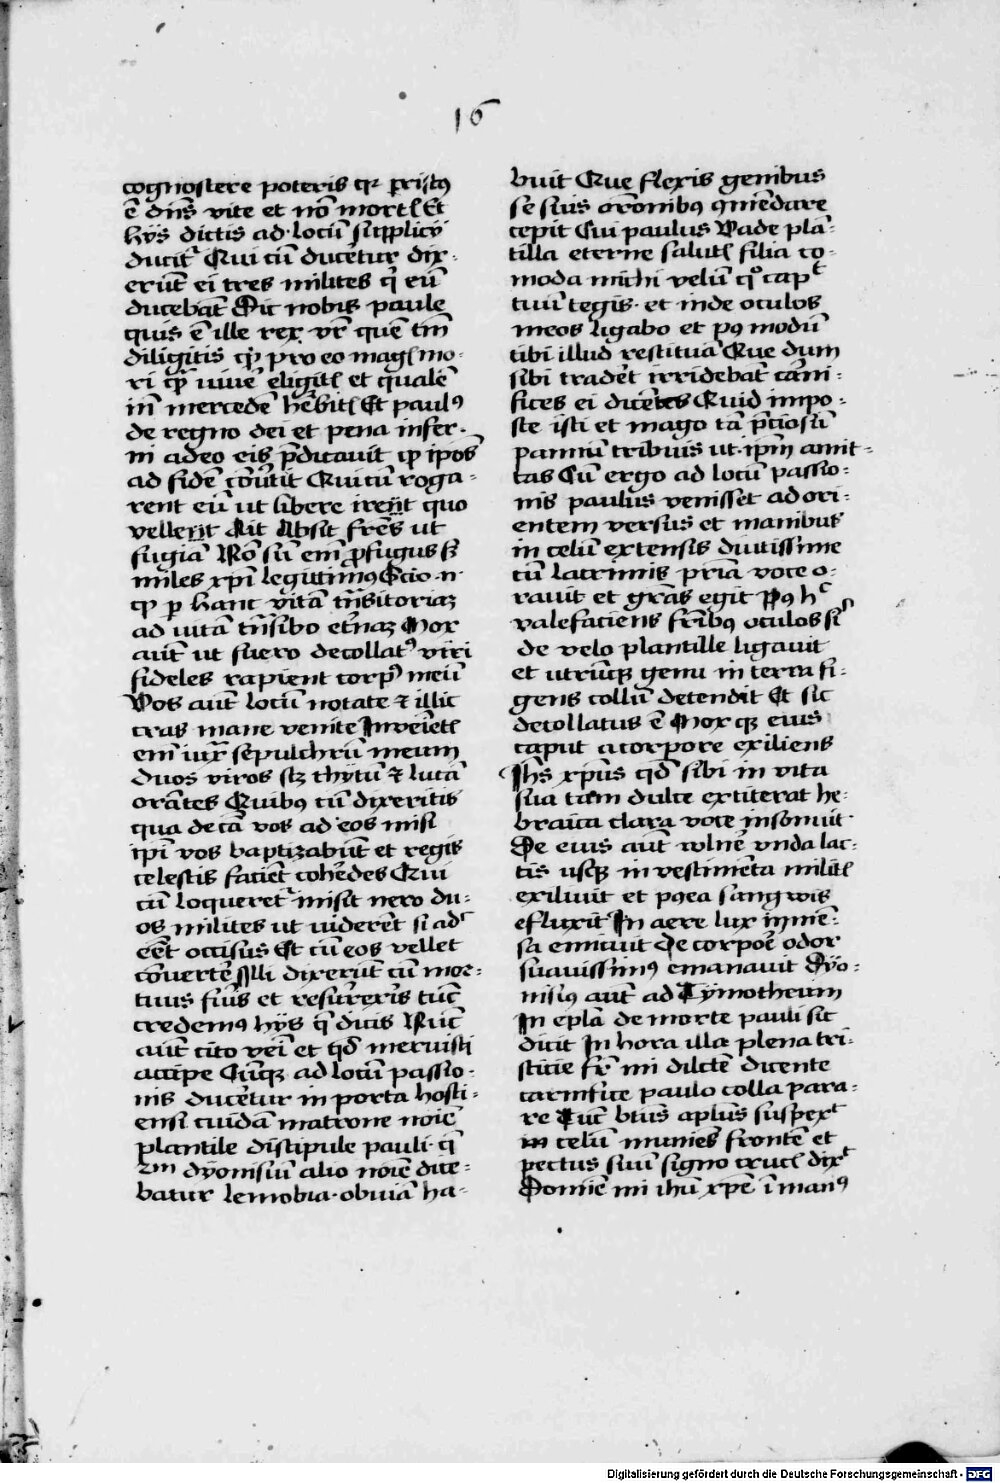 16
cognoscere poteris qr xpristus
ē dn̄s vite et nō mortꝭ Et
hijs dictis ad locū supplicij
ducit᷑ Qui cū ducet᷑ur dix-
erūt ei tres milites qͥ eū
ducebāt Dic nobis paule
quis ē ille rex vr̄ quē tm̄
diligitis qͥ pro eo magꝭ mo-
ri qͣ vive᷑ eligitꝭ et qualē
in mercedē he᷑bitꝭ Et paulꝰ
de regno dei et pena infer-
ni adeo eis p̄dicavit qͥ ip̄os
ad fidē cōv᷑tit Qui cū roga-
rent eū ut libere irent quo
vellent Ait Absit fr̄es ut
fugiā Nō sū em̄ ꝓfugus sꝫ
miles xp̄i legittimꝰ Scio n
qͥ ꝑ hanc vitā tn̄sitoriaꝫ
ad vitā tn̄sibo et᷑naꝫ Mox
aūt ut fuero decollatꝰ viri
fideles rapient corpꝰ meū
Vos aūt locū notate ⁊ illic
cras mane venite Inveīetꝭ
em̄ iux᷑ sepulchrū meum
duos viros scꝫ thytū ⁊ lucā
orātes Quibꝰ cū dixeritis
qua de cā vos ad eos misi
ip̄i vos baptizabūt et regis
celestis faciēt cohe᷑des Qui
cū loqueret᷑ misit nero du-
os milites ut viderent si adͨ
eēt occisus Et cū eos vellet
cōverte᷑ Illi dixerūt cū mor-
tuus fu᷑is et resu᷑rex᷑is tūc
credemꝰ hijs qͤ dicis Nūc
aūt cito veī et qd̄ meruisti
accipe Cūqꝫ ad locū passio-
nis duce᷑tur in porta hosti-
ensi cuidā matrone noīe
plantile discipule pauli qͤ
2m dyonisiū alio noīe dice-
batur lemobia obviā ha-
buit Que flexis genibus
se suis orōnibꝰ 9mēdare
cepit Cui paulus Vade plā-
tilla eterne salutꝭ filia co-
moda michi velū qͦ capͭ
tuū tegis et inde oculos
meos ligabo et pꝰ modū
tibi illud restituā Que dum
sibi trade᷑t irridebāt carni-
fices ei dicētes Quid impo-
stori isti et mago tā p̄ciosū
pannū tribuis ut ip̄m amit-
tas Cū ergo ad locū passio-
nis paulus venisset ad ori-
entem versus et manibus
in celū extensis diutissime
cū lacrimis pr̄ia voce o-
ravit et grās egit Pꝰ hͨ
valefaciens frībꝰ oculos sͥ
de velo plantille ligavit
et utrūqꝫ genu in terra fi-
gens collū detendit Et sic
decollatus ē Mox qꝫ eius
caput a corpore exiliens
Ihs xp̄us qd̄ sibi in vita
sua tam dulce extiterat he-
braica clara voce insonuit
De eius aūt vulne᷑ unda lac-
tis usqꝫ in vestimēta militꝭ
exiluit et pꝰea sangwis
efluxit In aere lux imē-
sa emicuit De corpoe᷑ odor
suavissimꝰ emanavit Dyo-
nisiꝰ aūt ad Tymotheum
In ep̄la de morte pauli sic
dicit In hora illa plena tri-
sticie fr̄ mi dilc̄te dicente
carnifice paulo colla para-
re Tūc bt̄us aplu̅s suspexͭ
in celū muniēs frontē et
pectus suū signo crucꝭ dixͭ
Domīe mi ihū xp̄e ī manꝰ
Digitalisierung gefördert durch die Deutsche Forschungsgemeinschaft - DFG